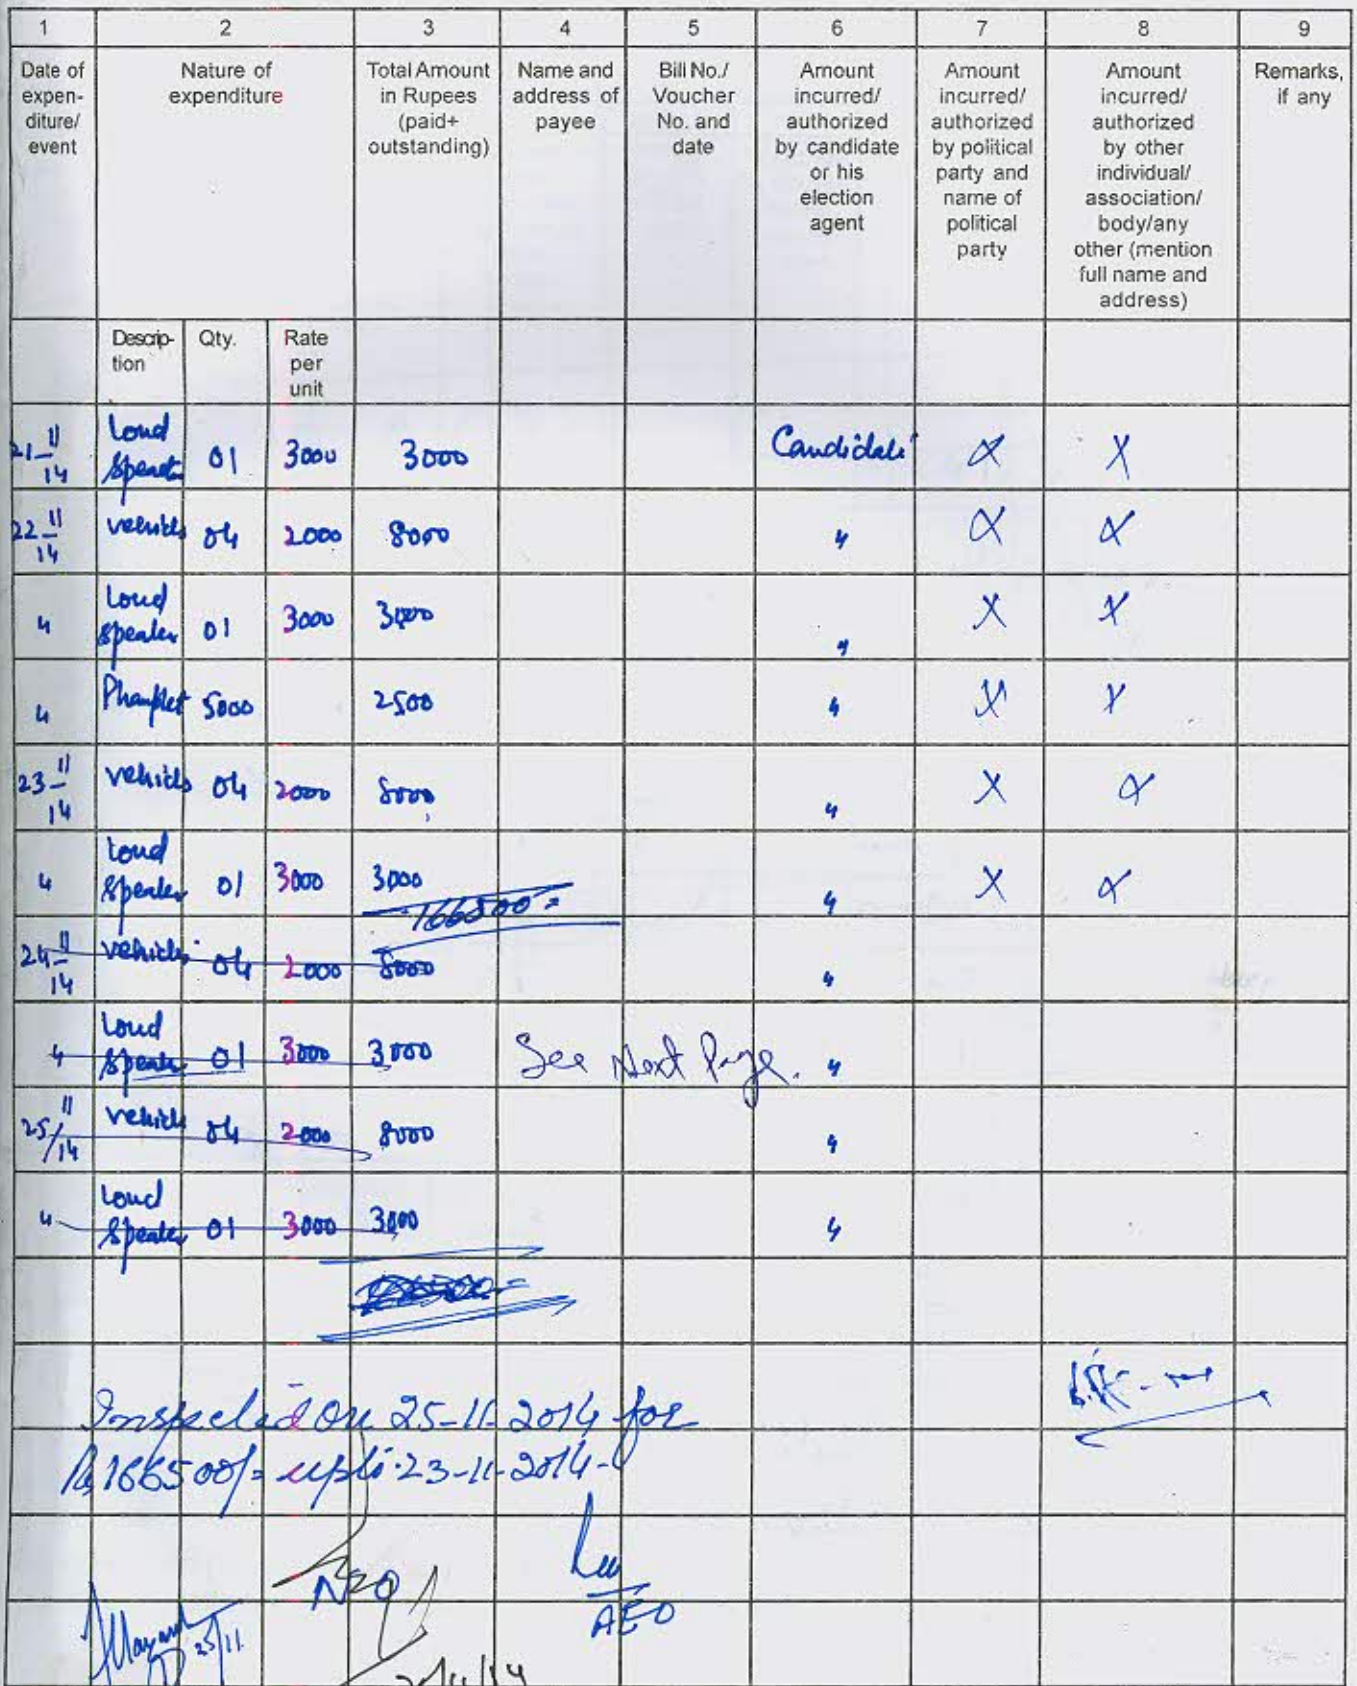 1 2 3 4 5 6 7 8 9
Date of expen- diture/ event Nature of expenditure Total Amount in Rupees (paid+ outstanding) Name and address of payee Bill No./ Voucher No. and date Amount incurred/ authorized by candidate or his election agent Amount incurred/ authorized by political party and name of political party Amount incurred/ authorized by other individual/ association/ body/any other (mention full name and address) Remarks, if any
Descrip- tion Qty. Rate per unit
21-11 14 Loud Speaker 01 3000 3000 Candidate X X
22-11 14 vehicle 04 2000 8000 " X X
" Loud Speaker 01 3000 3000 " X X
" Phamplet 5000 2500 " X X
23-11 14 vehicle 04 2000 8000 " X X
" Loud Speaker 01 3000 3000 " X X
166500=
24-11 14 vehicle 04 2000 8000 "
" Loud Speaker 01 3000 3000 See Next Page. "
25/11 14 vehicle 04 2000 8000 "
" Loud Speaker 01 3000 3000 "
Inspected on 25-11-2014 for
Rs 166500/= upto 23-11-2014
NEO
AEO
25/11